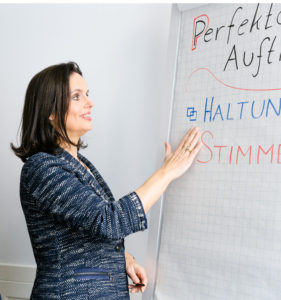 Perfekt
Auft
HALTUN
STIMME